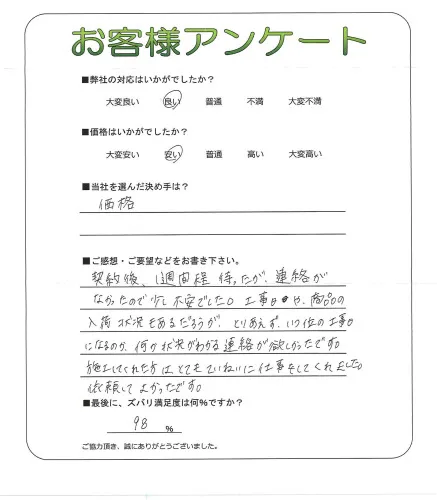 お客様アンケート
■弊社の対応はいかがでしたか?
大変良い 良い 普通 不満 大変不満
■価格はいかがでしたか?
大変安い 安い 普通 高い 大変高い
■当社を選んだ決め手は?
価格
■ご感想・ご要望などをお書き下さい。
契約後、1週間程待ったが、連絡が
なかったので少し不安でした。工事日や、商品の
入荷状況もあるだろうが、とりあえず、いつ位の工事日
になるのか、何か状況がわかる連絡が欲しかったです。
施工してくれた方はとてもていねいに仕事をしてくれました。
依頼してよかったです。
■最後に、ズバリ満足度は何%ですか?
98 %
ご協力頂き、誠にありがとうございました。